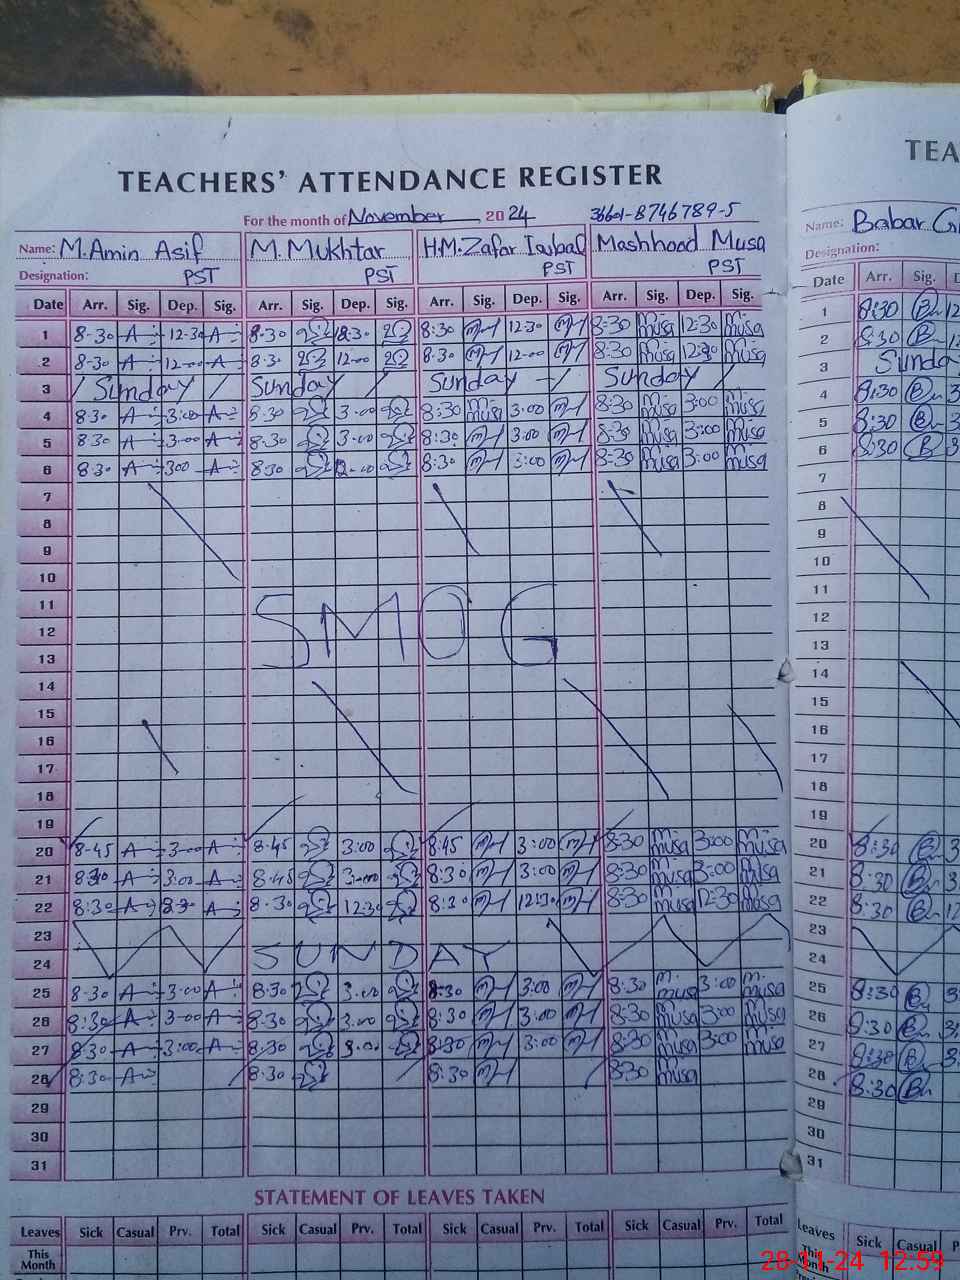 TEACHERS' ATTENDANCE REGISTER
For the month of November 2024 36601-8746789-5
Name: M.Amin Asif M. Mukhtar H.M. Zafar Iqbal Mashhood Musa
Designation: PST PST PST PST
Date Arr. Sig. Dep. Sig. Arr. Sig. Dep. Sig. Arr. Sig. Dep. Sig. Arr. Sig. Dep. Sig.
1 8-30 12-30 8-30 12-30 8:30 12:30 8-30 musa 12:30 musa
2 8-30 12-00 8-30 12-00 8:30 12-00 8:30 musa 12:30 musa
3 Sunday Sunday Sunday Sunday
4 8-30 3-00 8-30 3-00 8:30 musa 3:00 8:30 musa 3:00 musa
5 8-30 3-00 8-30 3-00 8:30 3:00 8-30 musa 3:00 musa
6 8-30 3-00 8-30 8:30 3:00 8:30 musa 3:00 musa
7
8
9
10
11
12 SMOG
13
14
15
16
17
18
19
20 8-45 3-00 8-45 3:00 8:45 3:00 8:30 musa 3:00 musa
21 3-00 8-45 3-00 8:30 3:00 8:30 musa 3:00 musa
22 8:30 8-30 12:30 8:30 12:30 8:30 musa 12:30 musa
23
24 SUNDAY
25 8-30 3-00 8:30 3:00 8:30 3:00 8:30 musa 3:00 musa
26 8:30 3-00 8-30 3:00 8:30 3:00 8:30 musa 3:00 musa
27 8:30 3:00 8:30 3:00 8:30 3:00 8:30 musa 3:00 musa
28 8:30 8:30 8:30 8:30 musa
29
30
31
STATEMENT OF LEAVES TAKEN
Leaves Sick Casual Prv. Total Sick Casual Prv. Total Sick Casual Prv. Total Sick Casual Prv. Total
This Month
TEA
Name: Babar
Designation:
Date Arr. Sig.
1 8:30
2 8:30
3 Sunday
4 8:30
5 8:30
6 8:30
7
8
9
10
11
12
13
14
15
16
17
18
19
20 8:30
21 8:30
22 8:30
23
24
25 8:30
26 8:30
27 8:30
28 8:30
29
30
31
Leaves Sick Casual
This Month
28-11-24 12:59